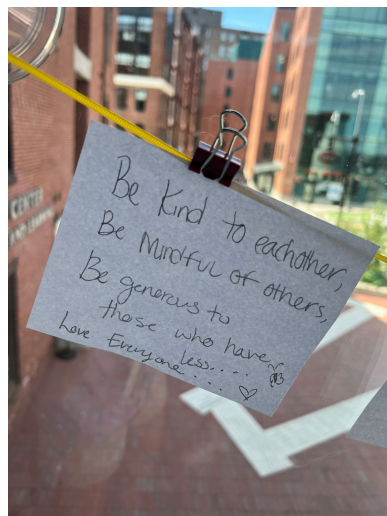 CENTER
Be Kind to eachother,
Be Mindful of others,
Be generous to
those who have
less....
Love Everyone...